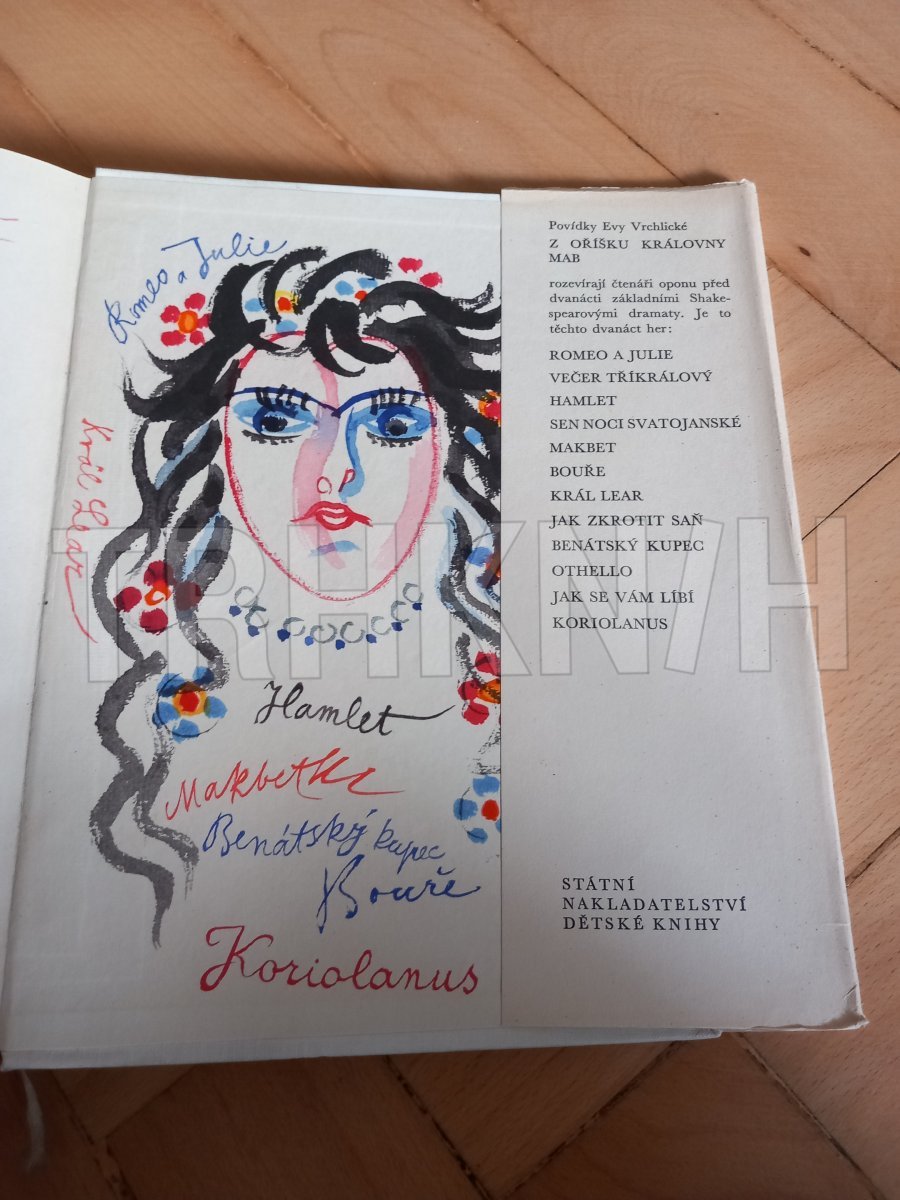 Romeo a Julie
Král Lear
Hamlet
Makbeth
Benátský kupec
Bouře
Koriolanus
Povídky Evy Vrchlické
Z OŘÍŠKU KRÁLOVNY
MAB
rozevírají čtenáři oponu před
dvanácti základními Shake-
spearovými dramaty. Je to
těchto dvanáct her:
ROMEO A JULIE
VEČER TŘÍKRÁLOVÝ
HAMLET
SEN NOCI SVATOJANSKÉ
MAKBET
BOUŘE
KRÁL LEAR
JAK ZKROTIT SAŇ
BENÁTSKÝ KUPEC
OTHELLO
JAK SE VÁM LÍBÍ
KORIOLANUS
STÁTNÍ
NAKLADATELSTVÍ
DĚTSKÉ KNIHY
TRHKNIH